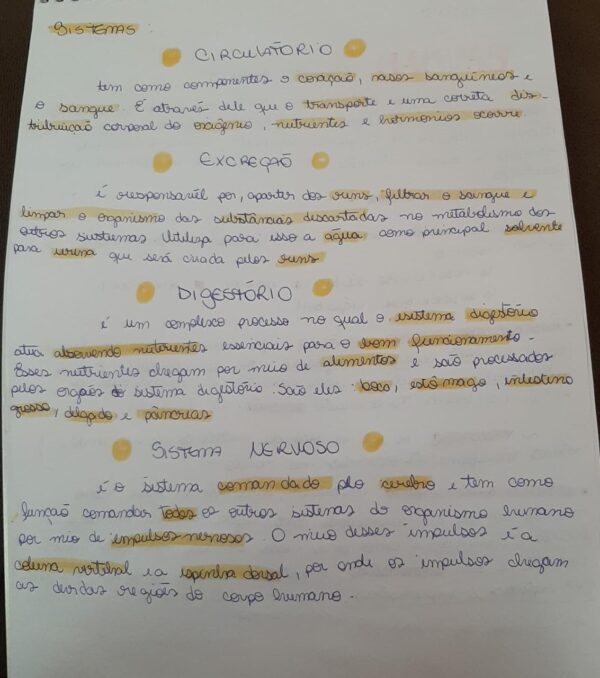 SISTEMAS:
CIRCULATÓRIO
tem como componentes o coração, vasos sanguíneos e
o sangue. É através dele que o transporte e uma correta dis-
tribuição corporal do oxigênio, nutrientes e hormônios ocorre.
EXCREÇÃO
é responsavél por, apartir dos runs, filtrar o sangue e
limpar o organismo das substâncias descartadas no metabolismo dos
outros sustemas. Utiliza para isso a água como principal solvente
para urena que será criada pelos runs
DIGESTÓRIO
é um complexo processo no qual o sistema digestório
atua absorvendo nutrientes essenciais para o bom funcionamento.
Esses nutrientes chegam por meio de alimentos e saõ processados
pelos orgaõs do sistema digestório. Saõ eles: boca, estômago, intestino
grosso, delgado e pâncrias
SISTEMA NERVOSO
é o sistema comandado pelo cerebro e tem como
funçaõ comandar todos os outros sistemas do organismo humano
por mio de impulsos nervosos. O meio desses impulsos é a
coluna vertebral e a espinha dorsal, por onde os impulsos chegam
as regiões do corpo humano.